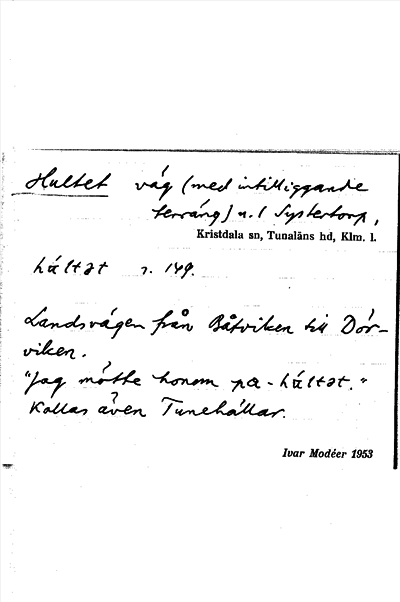 Hultet väg (med intilliggande
terräng) u. l Systertorp,
Kristdala sn, Tunaläns hd, Klm. l.
hɑltət s. 149.
Landsvägen från Båtviken till Dör-
viken.
"Jag mötte honom pa-hɑltət."
Kallas även Tunehällar.
Ivar Modéer 1953